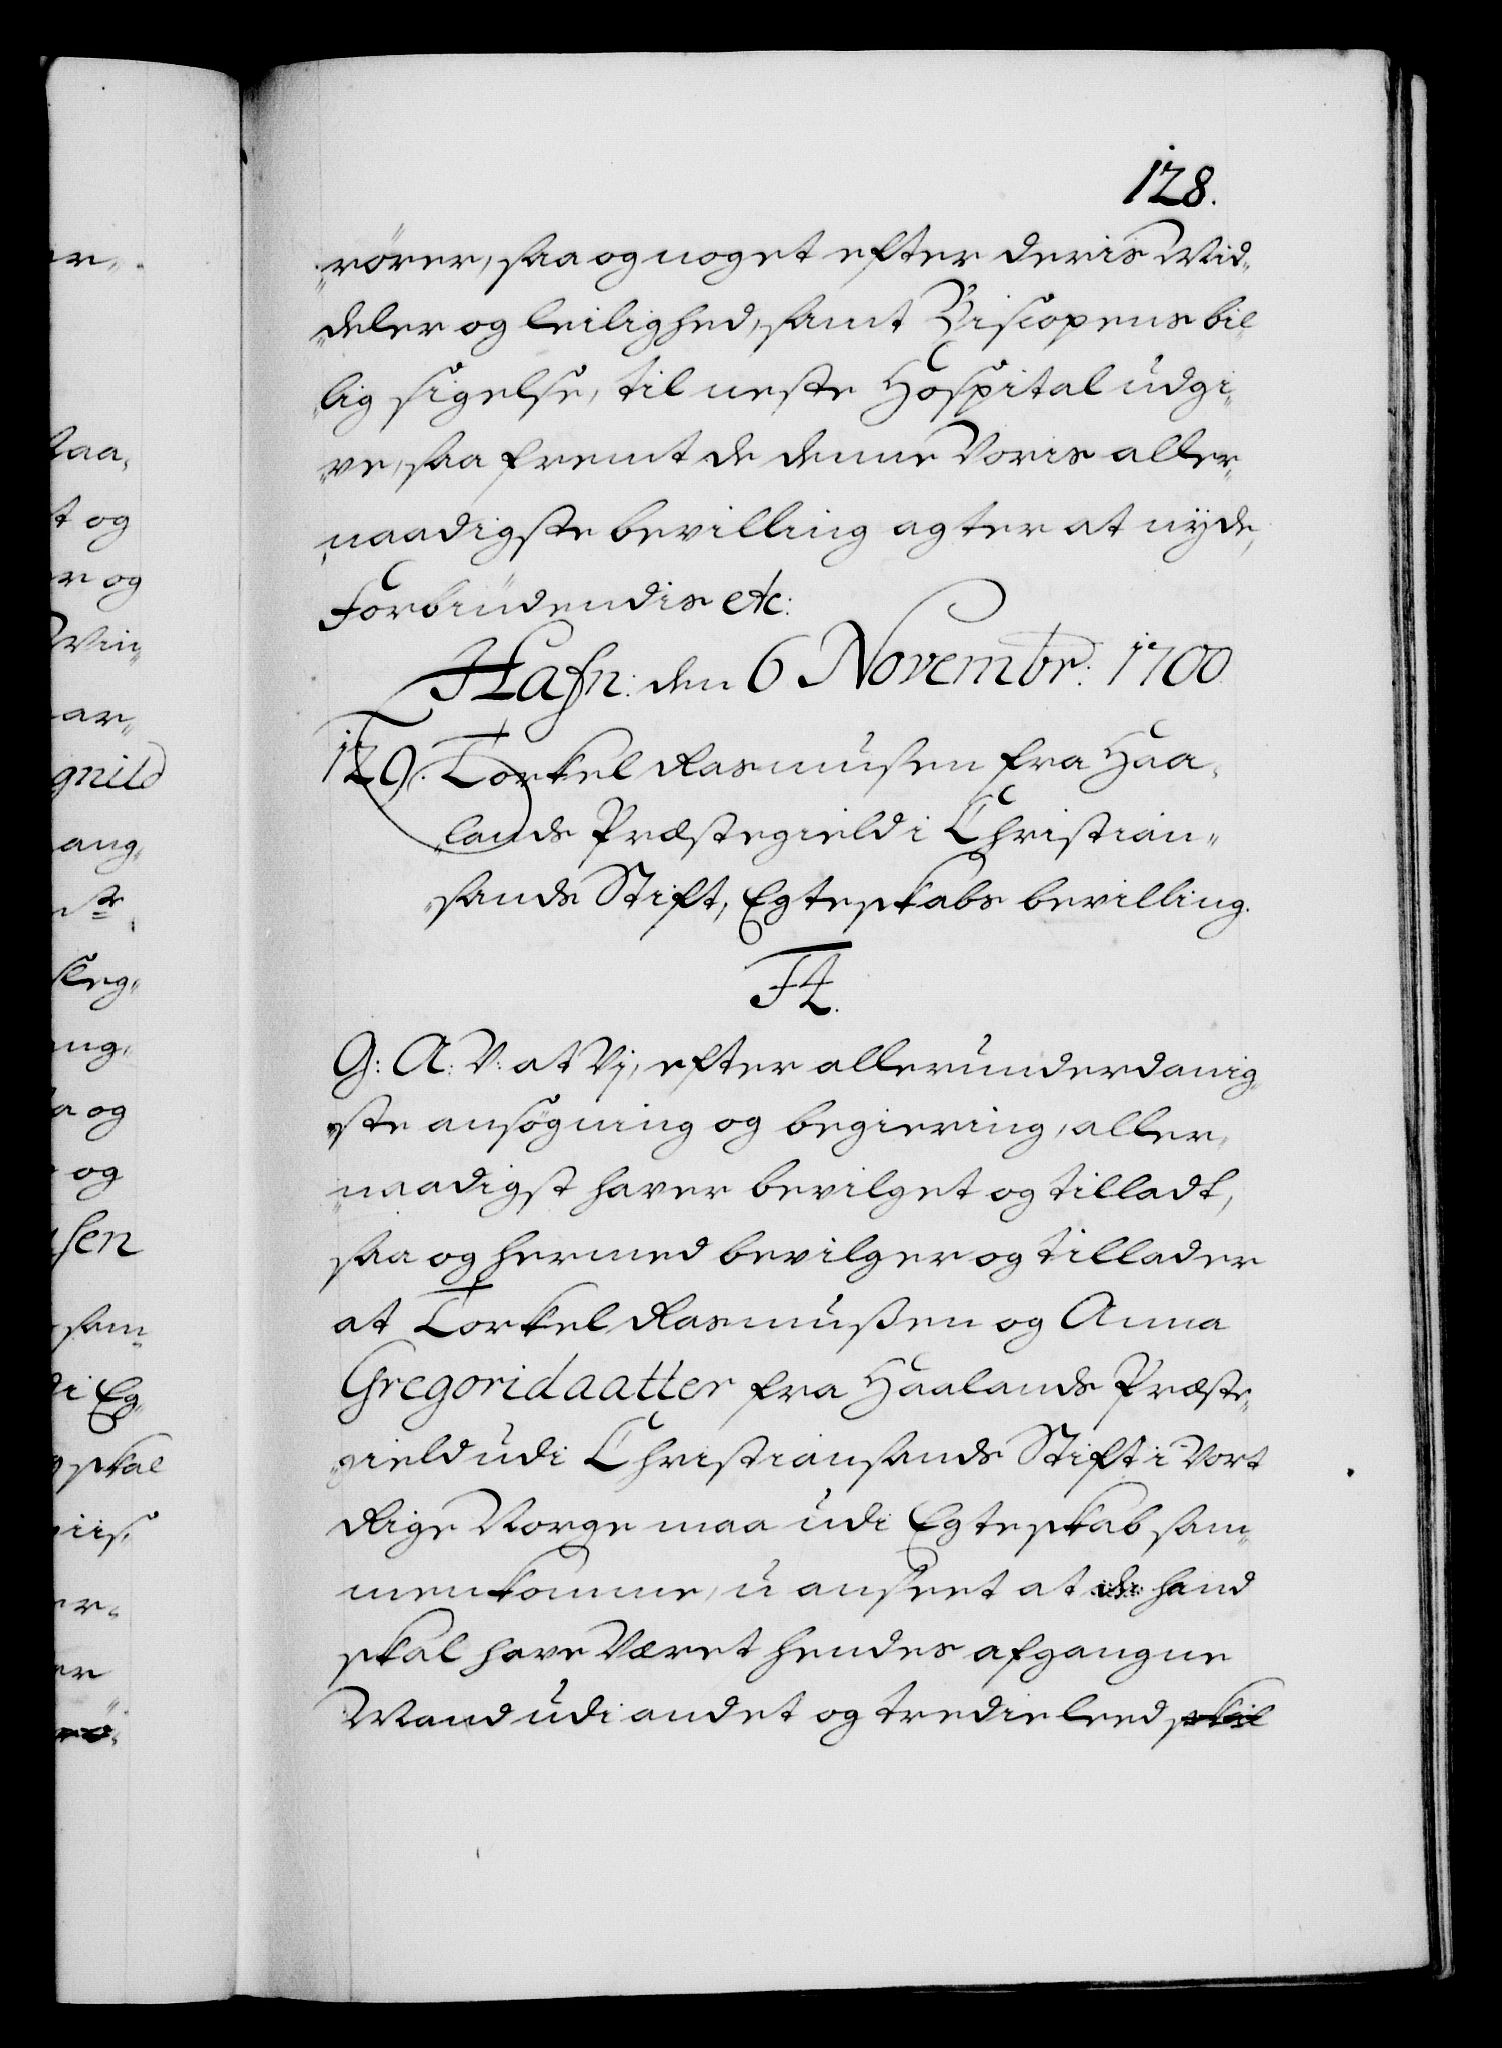 128.
„rörer, saa og noget efter deris Mid„
„deler og leilighed, samt Biscopens bil„
„lig sigelse, til neste Hospital udgi„
„ve, saa fremt de denne Voris aller„
„naadigste bevilling agter at nyde,
Forbiudendis etc:
Hafn: den 6 Novembr: 1700.
129. Torkel Rasmusen fra Haa„
„lands Præstegield i Christian„
„sands Stift, Egteskabs bevilling.
F4.
G: A: V: at Vj, efter allerunderdanig„
„ste ansögning og begiering, aller„
„naadigst haver bevilget og tilladt,
saa og hermed bevilger og tillader
at Torkel Rasmußen og Anna
Gregoridaatter fra Haalands Præste„
„gield udi Christiansands Stift i Vort
Rige Norge maa udi Egteskab sam„
menkomme, uanseet at de hand
skal have Været hendes afgangne
Mand udi andet og tredie leed skil
er„
Raa„
t og
er og
Win„
ar„
gnild
ang„
skeg„
ang„
da og
og
sen
sam„
di Eg„
skal
iis„
er„
er